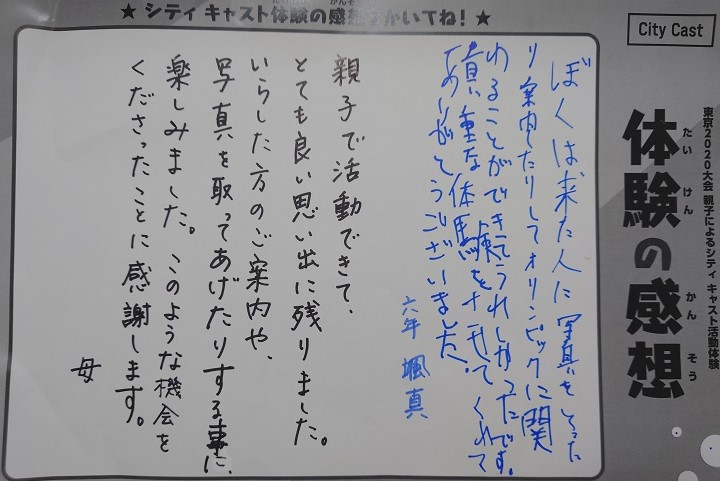 ★ シティ キャスト体験の感想をかいてね! ★
City Cast
東京2020大会 親子によるシティ キャスト活動体験
体験の感想
たいけん かんそう
ぼくは来た人に写真をとった
り案内したりしてオリンピックに関
わることができてうれしかったです。
貴重な体験をさせてくれて
ありがとうございました。
六年 颯真
親子で活動できて、
とても良い思い出に残りました。
いらした方のご案内や、
写真を取ってあげたりする事に、
楽しみました。このような機会を
くださったことに感謝します。
母